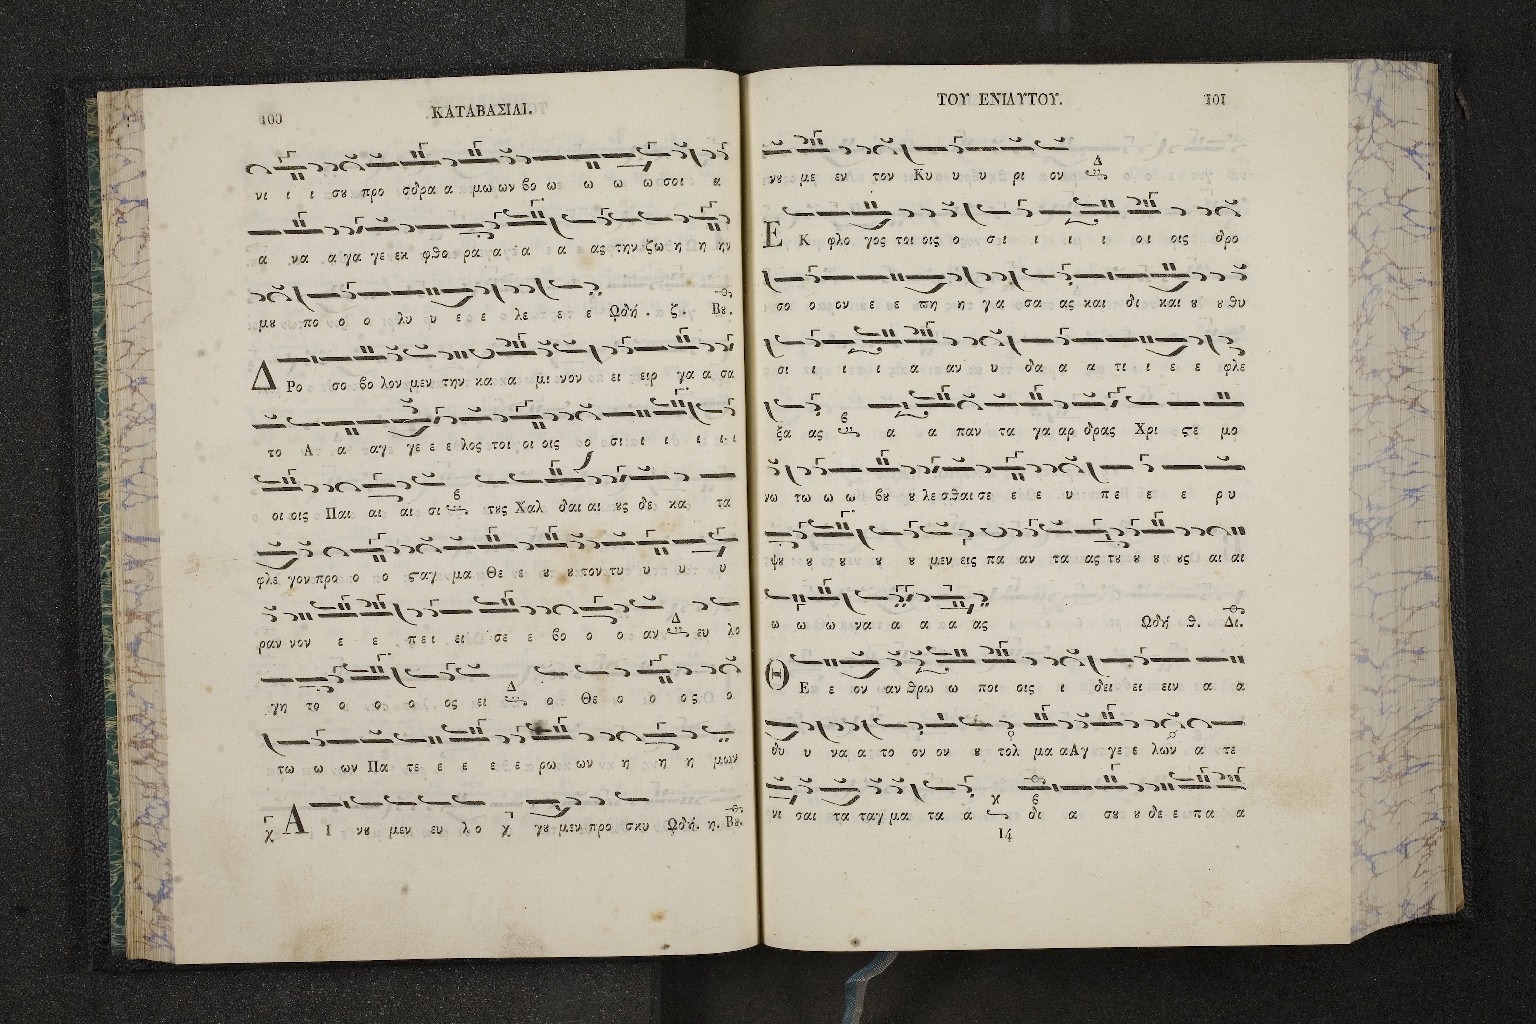 100
ΚΑΤΑΒΑΣΙΑΙ.
νι ι ι σȣ προ σδρα α μω ων βο ω ω ω ω σοι α
α να α γα γε εκ φθο ρα α α α ας την ζω η η ην
μȣ πο ο ο λυ υ ε ε λε ε ε Ωδή . ζ . Βȣ.
ΔΡο σο βο λον μεν την κα α μι νον ει ειρ γα α σα
το Α α αγ γε ε ε λος τοι οι οις ο σι ι ι ι ι
οι οις Παι αι αι σι β τȣς Χαλ δαι αι ȣς δε κα τα
φλε γον προ ο ο ϛαγ μα Θε ε ȣ ȣ τον τυ υ υ υ
ραν νον ε ε πει ει σε ε βο ο ο αν Δ ευ λο
γη το ο ο ο ος ει Δ ο Θε ο ο ο ος ο
τω ω ων Πα τε ε ε ε ε ρω ων η η η μων
ΑΙ νȣ μεν ευ λο γȣ μεν προ σκυ Ωδή. η. Βȣ.
ΤΟΥ ΕΝΙΑΥΤΟΥ.
101
νȣ με εν τον Κυ υ υ ρι ον Δ
ΕΚ φλο γος τοι οις ο σι ι ι ι ι οι οις δρο
σο ο ον ε ε πη η γα σα ας και δι και ȣ ȣ θυ
σι ι ι ι α αν υ δα α α τι ι ε ε φλε
ξα ας β α α παν τα γα αρ δρας Χρι ϛε μο
νω τω ω ω βȣ ȣ λε σθαι σε ε ε υ πε ε ε ρυ
ψȣ ȣ ȣ ȣ ȣ μεν εις πα αν τα ας τȣ ȣ ȣ ȣς αι αι
ω ω ω να α α α ας Ωδή θ. Δι.
ΘΕ ε ον αν θρω ω ποι οις ι δει ει ειν α α
δυ υ να α το ον ον ȣ τολ μα α Αγ γε ε λων α τε
νι σαι τα ταγ μα τα α δι α σȣ ȣ δε ε πα α
14